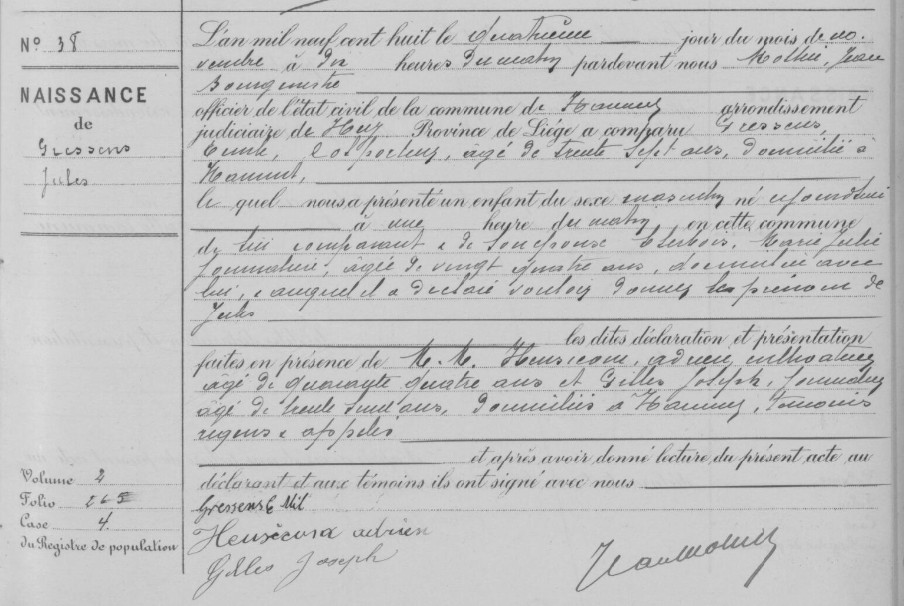 N° 38
NAISSANCE
de
Gressens
Jules
L'an mil neuf cent huit le quatrième jour du mois de no-
vembre à dix heures du matin pardevant nous Jean
Bourgmestre
officier de l'état civil de la commune de Hannut arrondissement
judiciaire de Huy Province de Liège a comparu Gressens,
Emile, âgé de trente sept ans, domicilié à
Hannut,
le quel nous a présenté un enfant du sexe masculin né aujourd'hui
à une heure du matin en cette commune
de lui comparant & de son épouse Marie Julie
journalière, âgée de vingt quatre ans, domiciliée avec
lui, & auquel il a déclaré vouloir donner le prénom de
Jules
les dites déclaration et présentation
faites en présence de M. M. Heusicom, Adrien, cultivateur
âgé de quarante quatre ans et Gilles Joseph, journalier
âgé de trente ans, domiciliés à Hannut, témoins
requis & appelés
et après avoir donné lecture du présent acte au
déclarant et aux témoins ils ont signé avec nous
Gressens Emil
Heusicom adrien
Gilles Joseph
Volume 2
Folio 265
Case 4.
du Registre de population